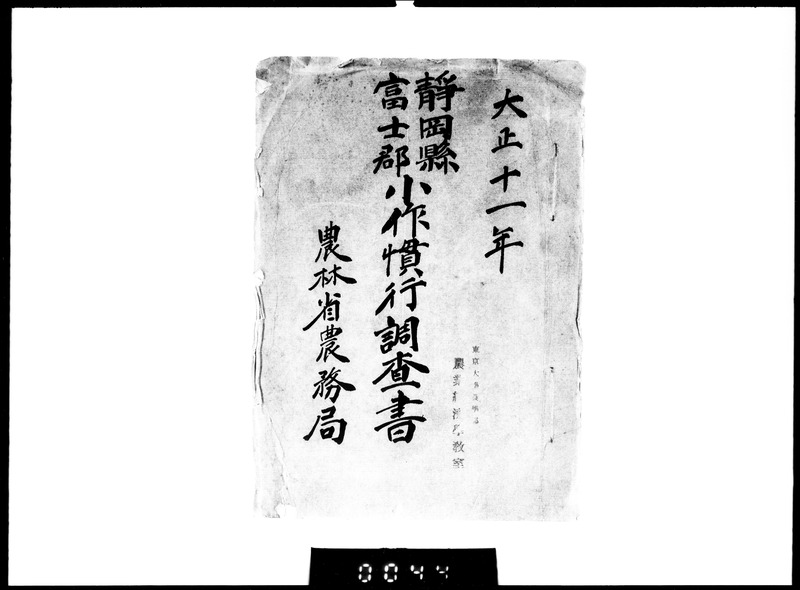 大正十一年
靜岡縣
富士郡
小作慣行調査書
農林省農務局
東京大学農学部
農業経済学教室
0044